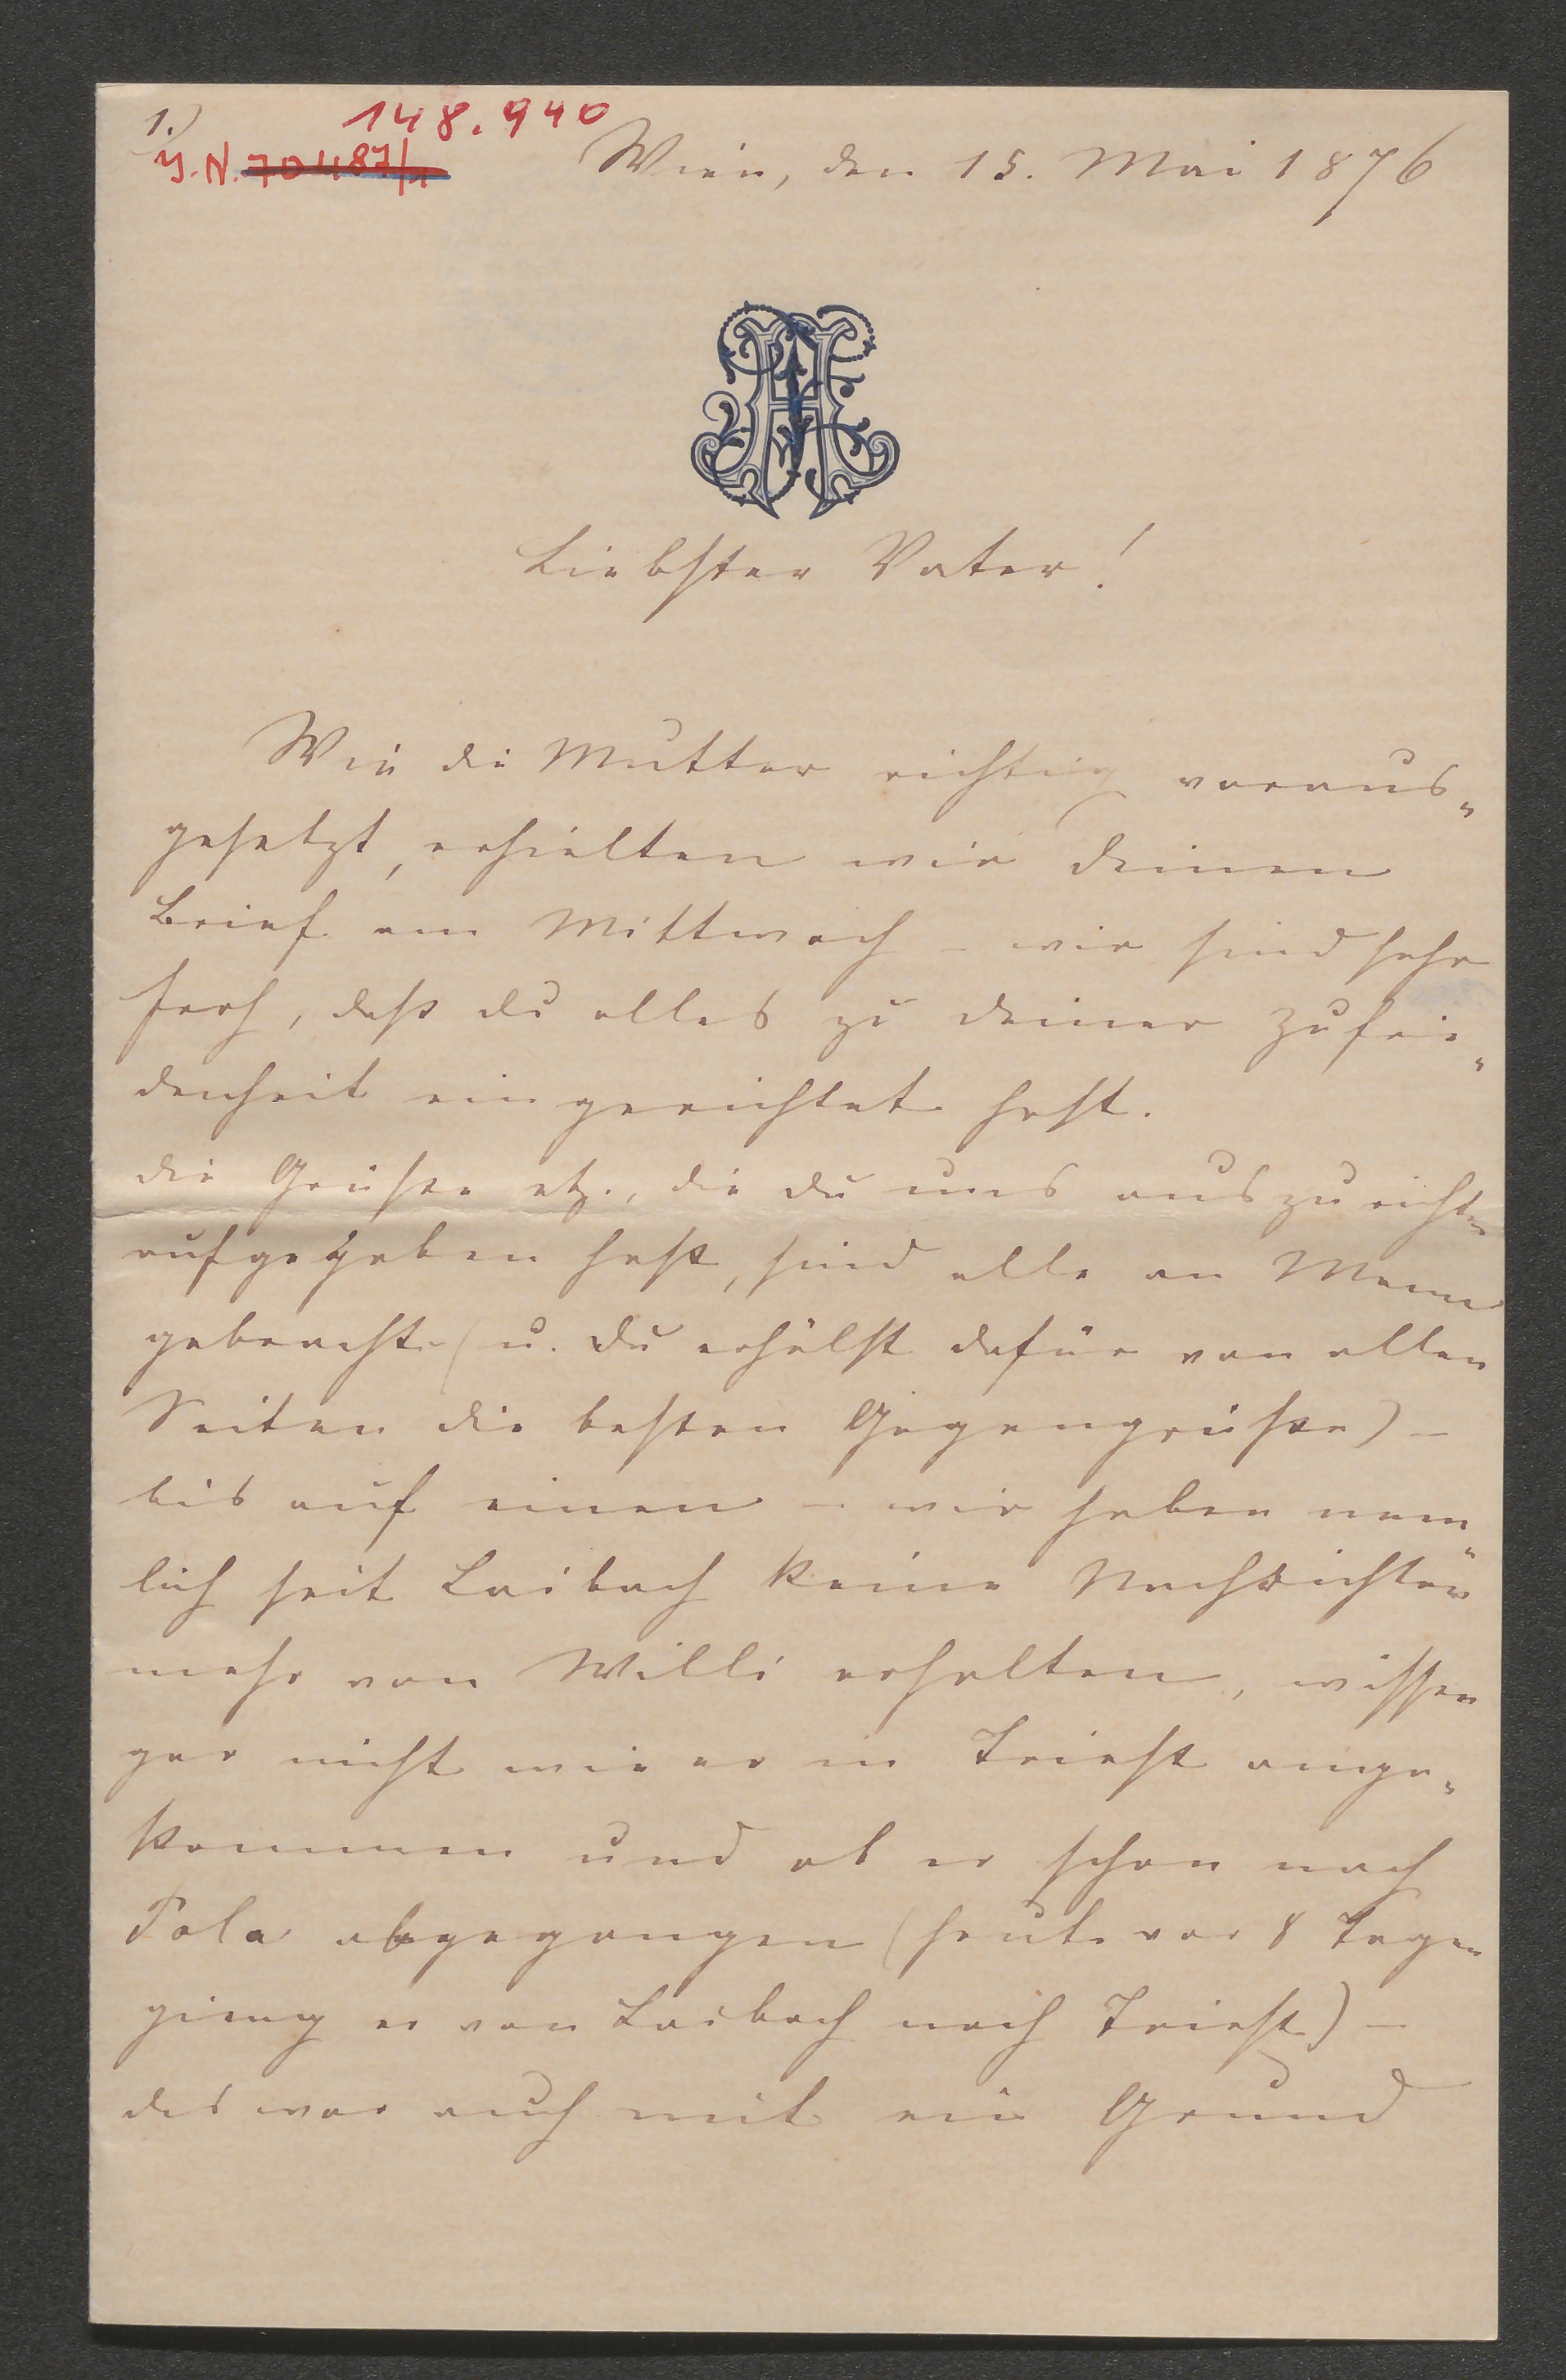 1.)
148.940
J.N. 70487/1
Wien, den 15. Mai 1876
Liebster Vater!
Wie die Mutter richtig voraus„
gesetzt, erhielten wir deinen
Brief am Mittwoch – wir sind sehr
froh, daß du alles zu deiner Zufrie„
denheit eingerichtet hast.
die Grüße etz., die du uns auszurichten
aufgegeben hast, sind alle an Mann
gebracht (u. du erhälst dafür von allen
Seiten die besten Gegengrüße) –
bis auf einen – wir haben näm„
lich seit Laibach keine Nachrichten
mehr von Willi erhalten, wissen
gar nicht wie er in Triest ange„
kommen und ob er schon nach
Pola abgegangen (heute vor 8 Tagen
gieng er von Laibach nach Triest) –
das war auch mit ein Grund